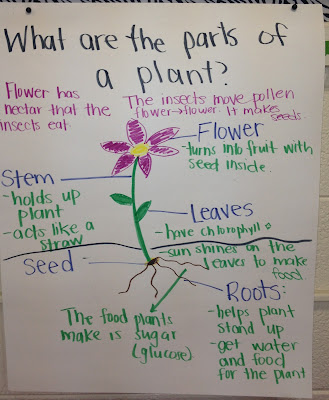 What are the parts of
a plant?
Flower has
nectar that the
insects eat.
The insects move pollen
flower→flower. It makes
seeds.
Flower
-turns into fruit with
seed inside.
Stem
-holds up
plant
-acts like a
straw
Leaves
-have chlorophyll
-sun shines on the
leaves to make
food
Seed -
Roots:
-helps plant
stand up
-get water
and food
for the plant
The food plants
make is sugar
(glucose)